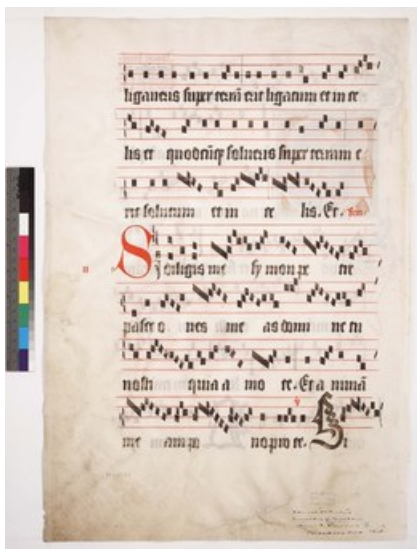 ligaueris super terrã erit ligatum et in ce
lis et quodcũqꝫ solueris super terram e
rit solutum et in ce lis. Et.
Si diligis me symon pe tre
pasce o ues me as domi ne tu
nosti quia a mo te. Et a nimã
me am po no pro te.